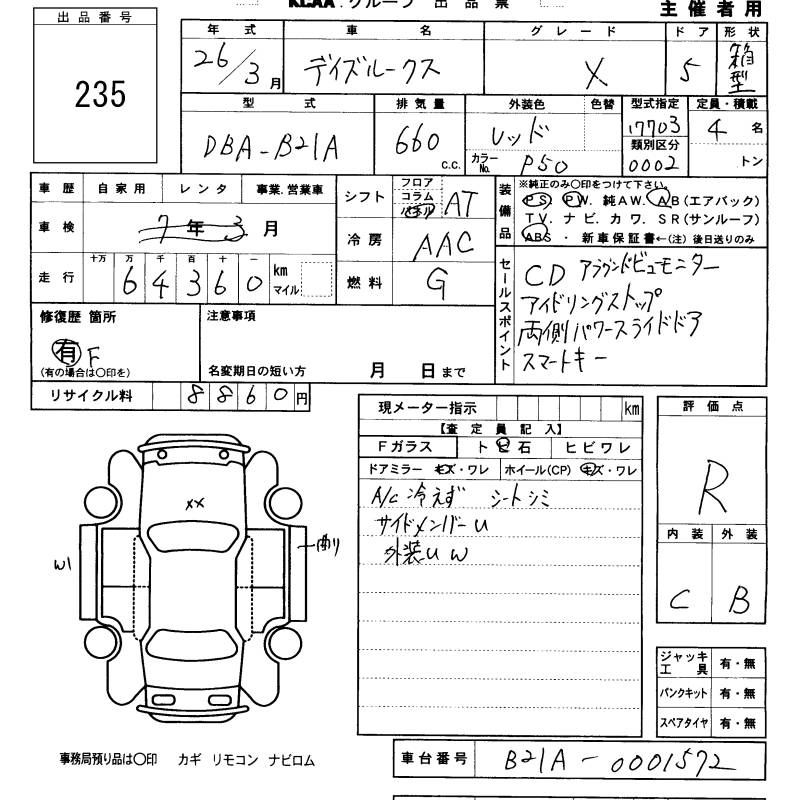 KCAA.グループ 出品票
主催者用
出品番号
235
年式 車名 グレード ドア 形状
26/3月 デイズルークス X 5 箱型
型式 排気量 外装色 色替 型式指定 定員・積載
DBA-B21A 660 c.c. レッド 17703 4名
カラーNo. P50 類別区分 0002 トン
車歴 自家用 レンタ 事業.営業車
車検 7年3月
走行 十万 万 千 百 十 一
64360 km マイル
シフト フロア コラム パネル AT
冷房 AAC
燃料 G
装備品 ※純正のみ○印をつけて下さい。
PS, PW. 純AW. AB(エアバック)
TV. ナビ. カワ. SR(サンルーフ)
ABS ・ 新車保証書←(注)後日送りのみ
セールスポイント
CD アラウンドビューモニター
アイドリングストップ
両側パワースライドドア
スマートキー
修復歴 箇所
有 F
(有の場合は○印を)
注意事項
名変期日の短い方 月 日まで
リサイクル料 8860円
現メーター指示 km
【査定員記入】
Fガラス トビ石 ヒビワレ
ドアミラー キズ・ワレ ホイール(CP) キズ・ワレ
A/C 冷えず シートシミ
サイドメンバーU
外装U W
評価点
R
内装 外装
C B
XX
W1
曲り
ジャッキ工具 有・無
パンクキット 有・無
スペアタイヤ 有・無
事務局預り品は○印 カギ リモコン ナビロム
車台番号 B21A-0001572